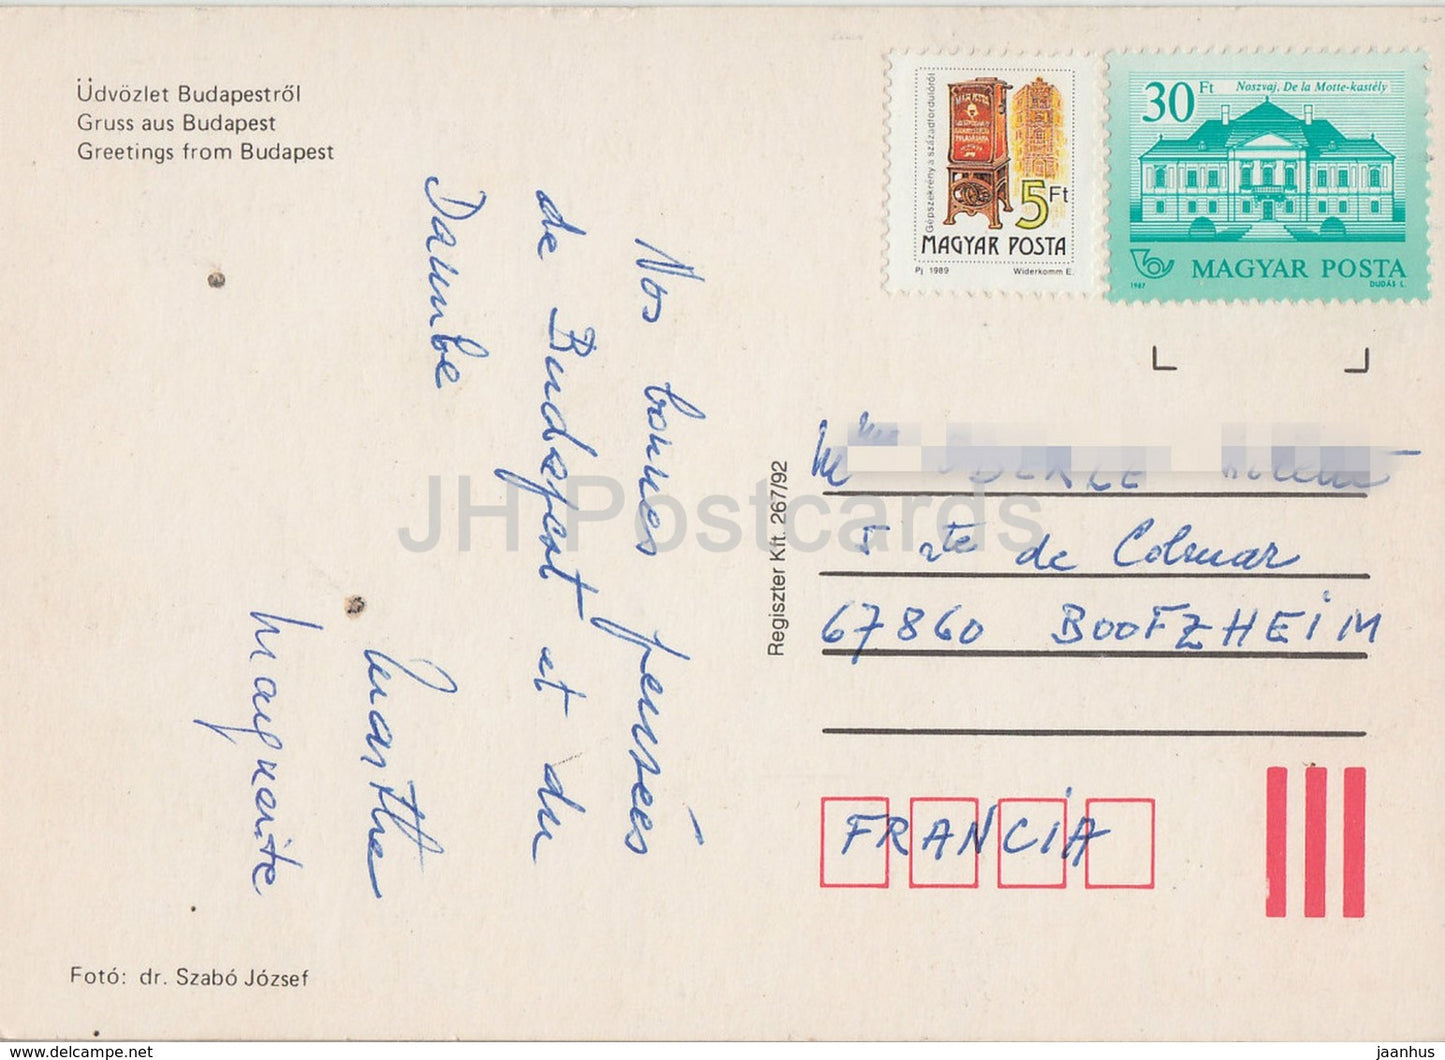 Üdvözlet Budapestről
Gruss aus Budapest
Greetings from Budapest
Nos bonnes pensées
de Budapest et du
Danube
Marthe
Marguerite
Fotó: dr. Szabó József
Regiszter Kft. 267/92
Gépszekrény a századfordulóról
5Ft
MAGYAR POSTA
Pj 1989 Widerkomm E.
30 Ft Noszvaj. De la Motte-kastély
MAGYAR POSTA
1987 DUDÁS L.
5 rte de Colmar
67860 BOOFZHEIM
FRANCIA
JH Postcards
www.delcampe.net
jaanhus